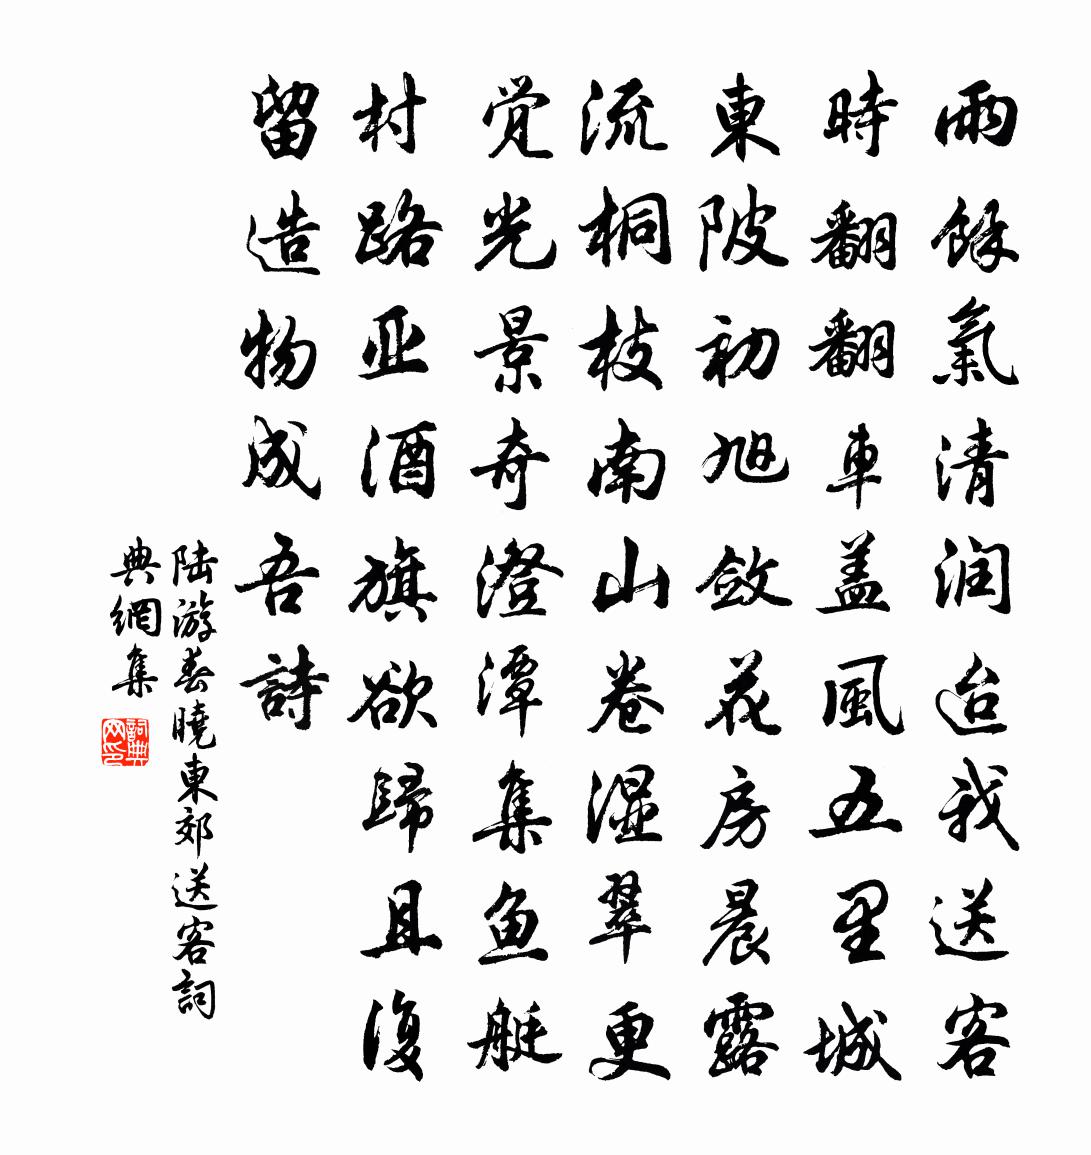 雨餘氣清润迨我送客
時翻翻車盖風五里城
東陂初旭斂花房晨露
流桐枝南山卷湿翠更
觉光景奇澄潭集鱼艇
村路亚酒旗欲歸且復
留造物成吾詩
陆游春曉東郊送客詞
典網集
詞典网印